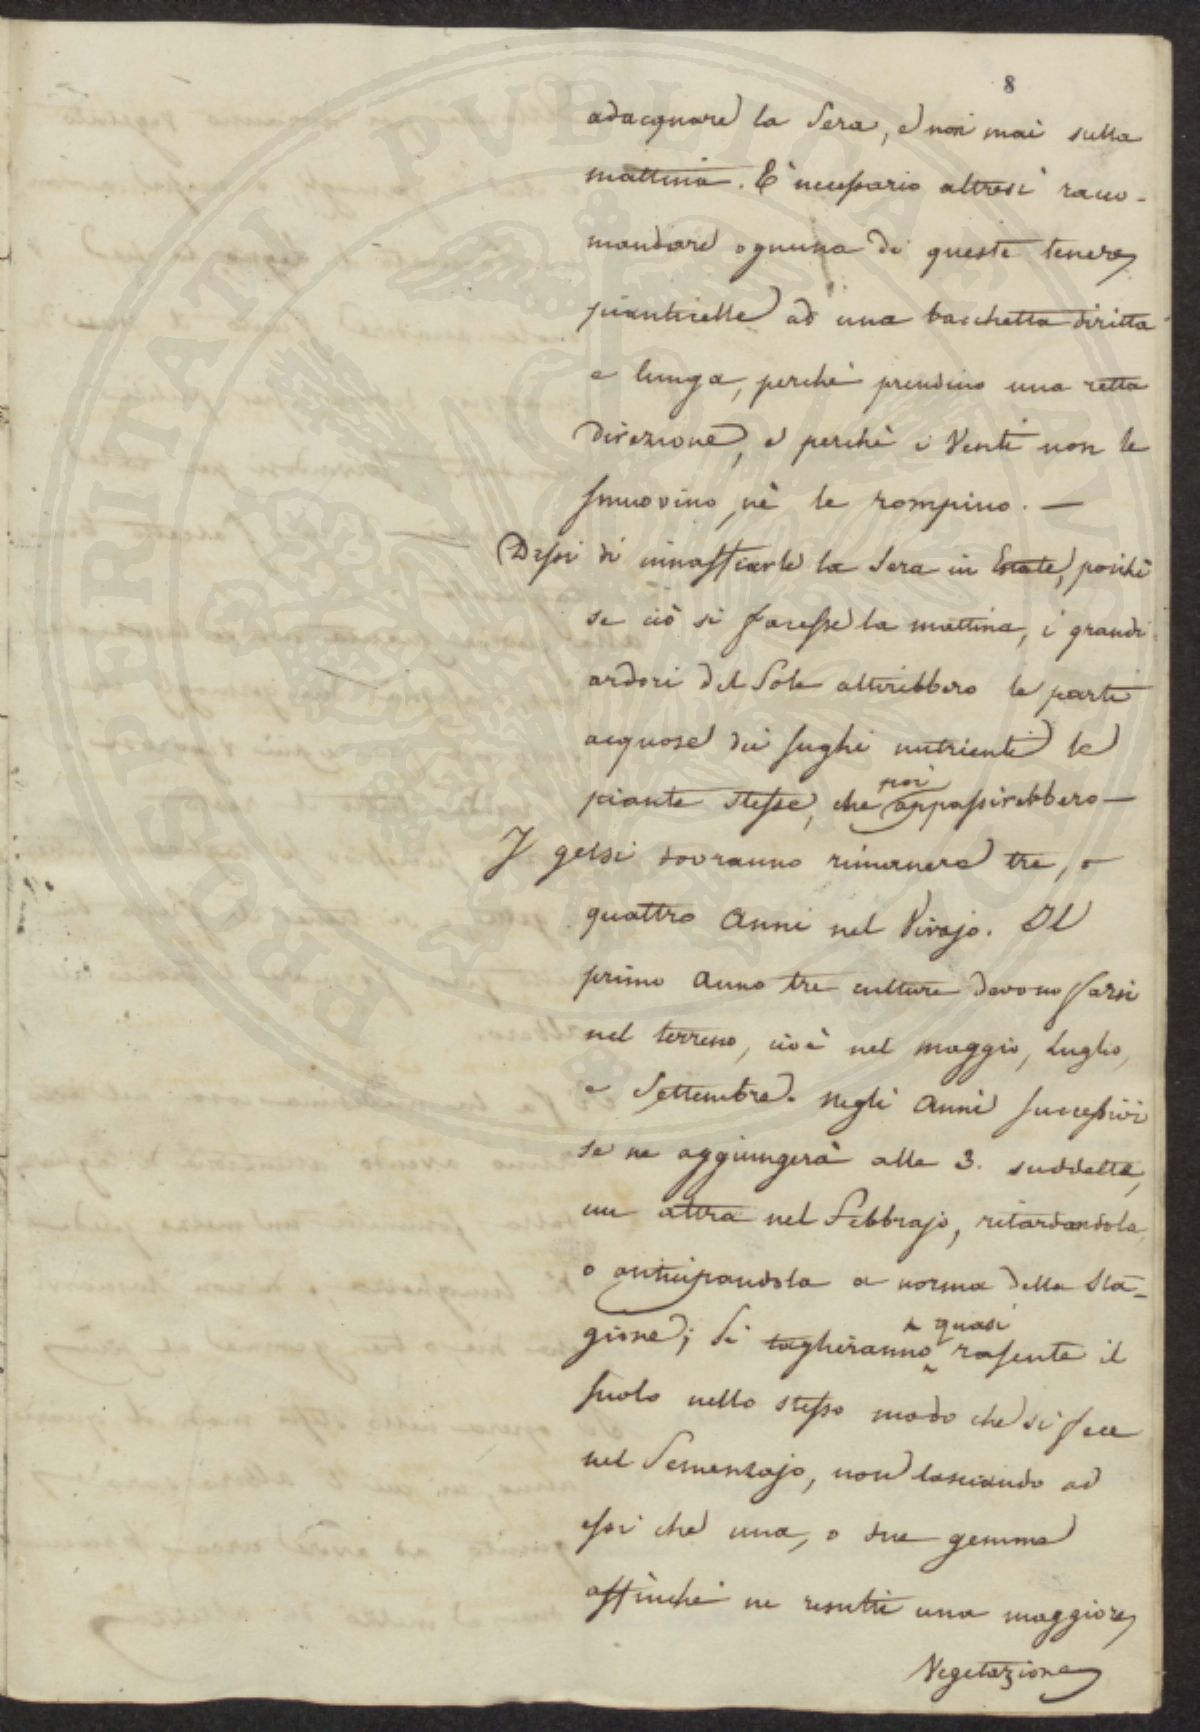 8
adacquare la Sera, e non mai sulla
mattina. E' necessario altresì racco-
mandare ognuna di queste tenere
pianticelle ad una bacchetta diritta
e lunga, perchè prendino una retta
direzione, e perchè i Venti non le
smuovino, nè le rompino. —
Dissi di innaffiarle la Sera in Estate, poichè
se ciò si facesse la mattina, i grandi
ardori del Sole attirebbero le parti
acquose dei sughi nutrienti le
piante stesse, che poi appassirebbero —
I gelsi dovranno rimanere tre, o
quattro Anni nel Vivajo. Il
primo Anno tre culture devono farsi
nel terreno, cioè nel maggio, Luglio,
e Settembre. Negli Anni successivi
se ne aggiungerà alle 3. suddette,
un altra nel Febbrajo, ritardandola,
o anticipandola a norma della Sta-
gione; Si taglieranno quasi rasente il
suolo nello stesso modo che si fece
nel Semenzajo, non lasciando ad
essi che una, o due gemme
affinchè ne resulti una maggiore
Vegetazione
PROSPERITATI PVBLICAE